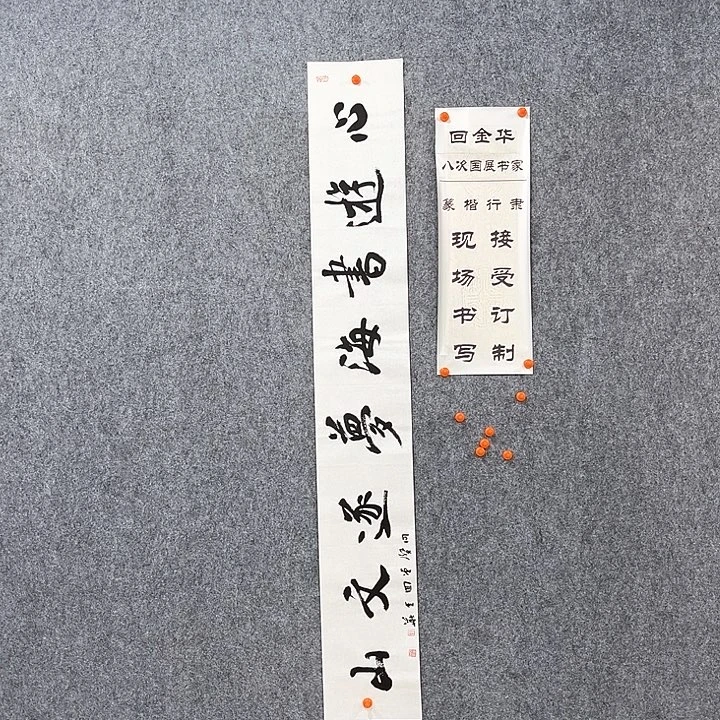 心遊書海夢逐文山
回金華
回金华
八次国展书家
篆楷行隶
现场书写
接受订制